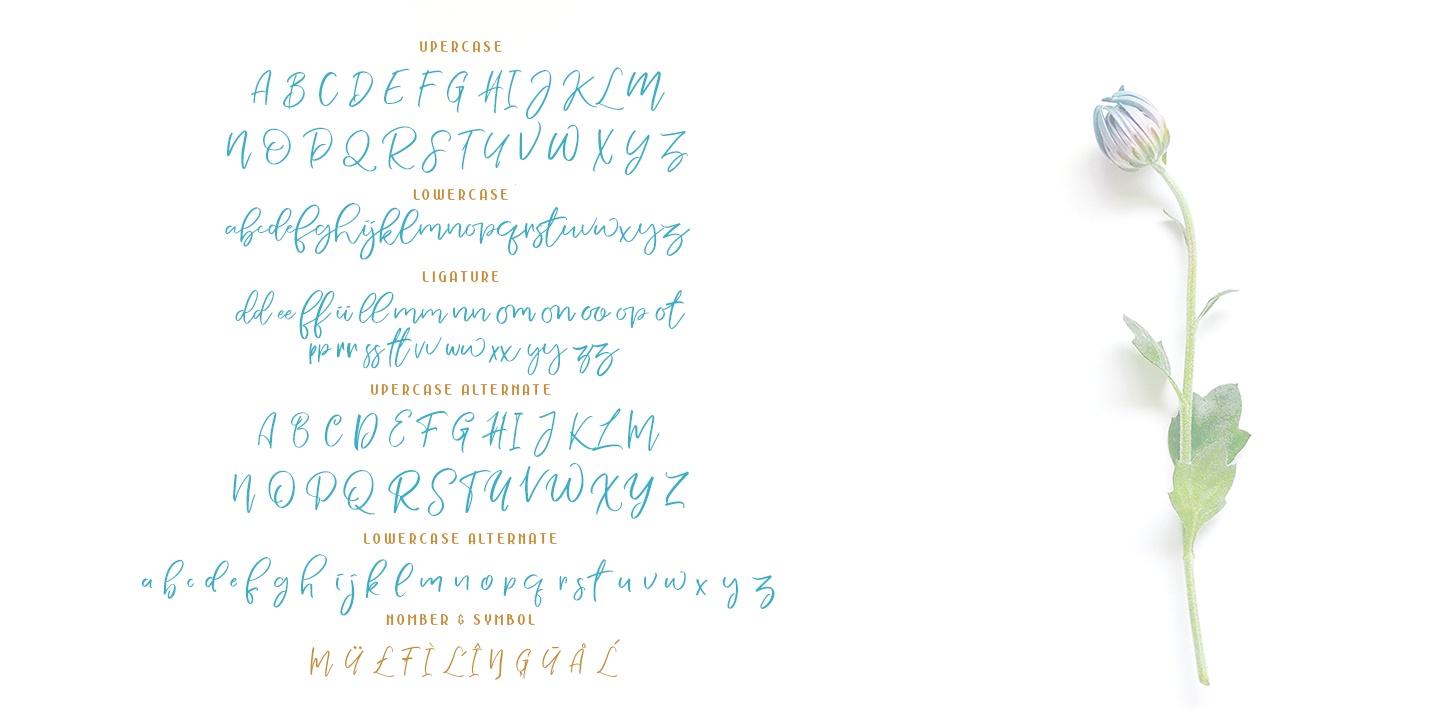 UPERCASE
A B C D E F G H I J K L M
N O P Q R S T U V W X Y Z
LOWERCASE
abcdefghijklmnopqrstuvwxyz
LIGATURE
dd ee ff ii ll mm nn om on oo op ot
pp rr ss tt vv ww xx yy zz
UPERCASE ALTERNATE
A B C D E F G H I J K L M
N O P Q R S T U V W X Y Z
LOWERCASE ALTERNATE
a b c d e f g h i j k l m n o p q r s t u v w x y z
NOMBER & SYMBOL
M Ü Ł F Ì Ľ Î Ŋ Ģ Ū Å Ĺ